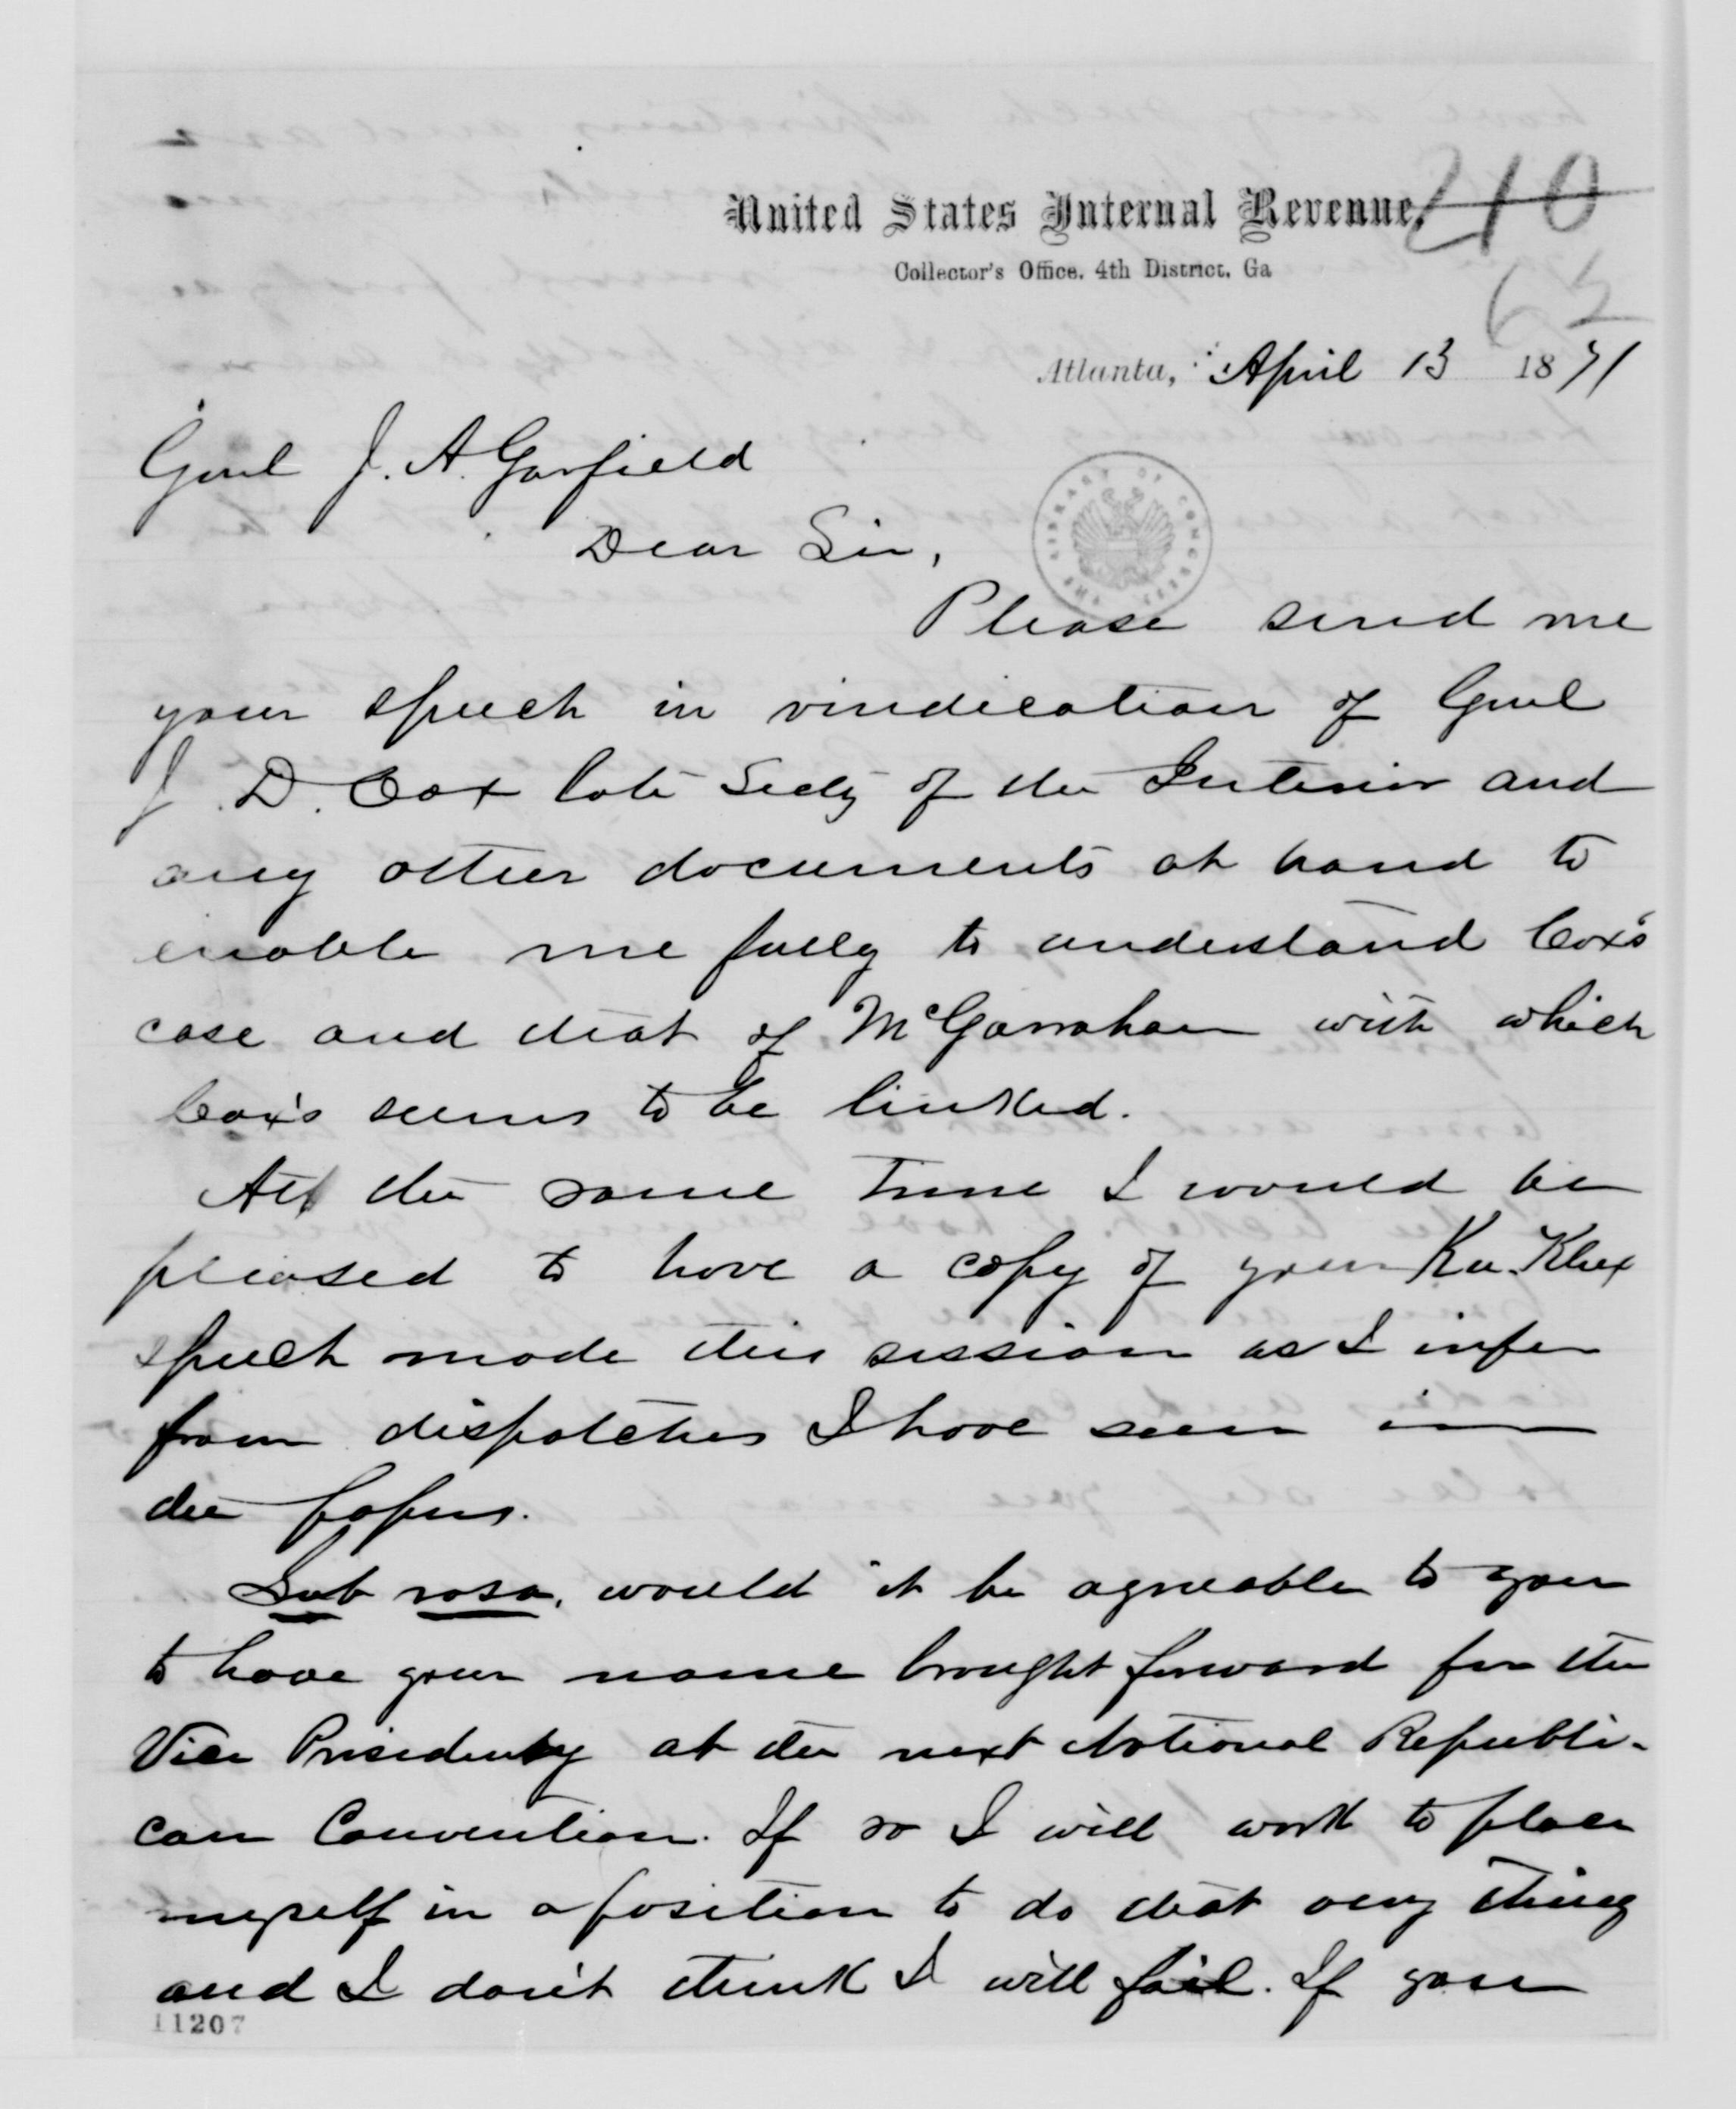 210
United States Internal Revenue,
Collector's Office. 4th District. Ga
62
Atlanta, April 13 1871
Genl J. A. Garfield
Dear Sir,
THE LIBRARY OF CONGRESS
Please send me
your speech in vindication of Genl
J. D. Cox late Secty of the Interior and
any other documents at hand to
enable me fully to understand Cox's
case and that of McGarrahan with which
Cox's seems to be linked.
At the same time I would be
pleased to have a copy of your Ku-Klux
speech made this session as I infer
from dispatches I have seen in
the papers.
Sub rosa, would it be agreable to you
to have your name brought forward for the
Vice Presidenty at the next National Republi-
can Convention. If so I will work to place
myself in a position to do that very thing
and I don't think I will fail. If you
11207